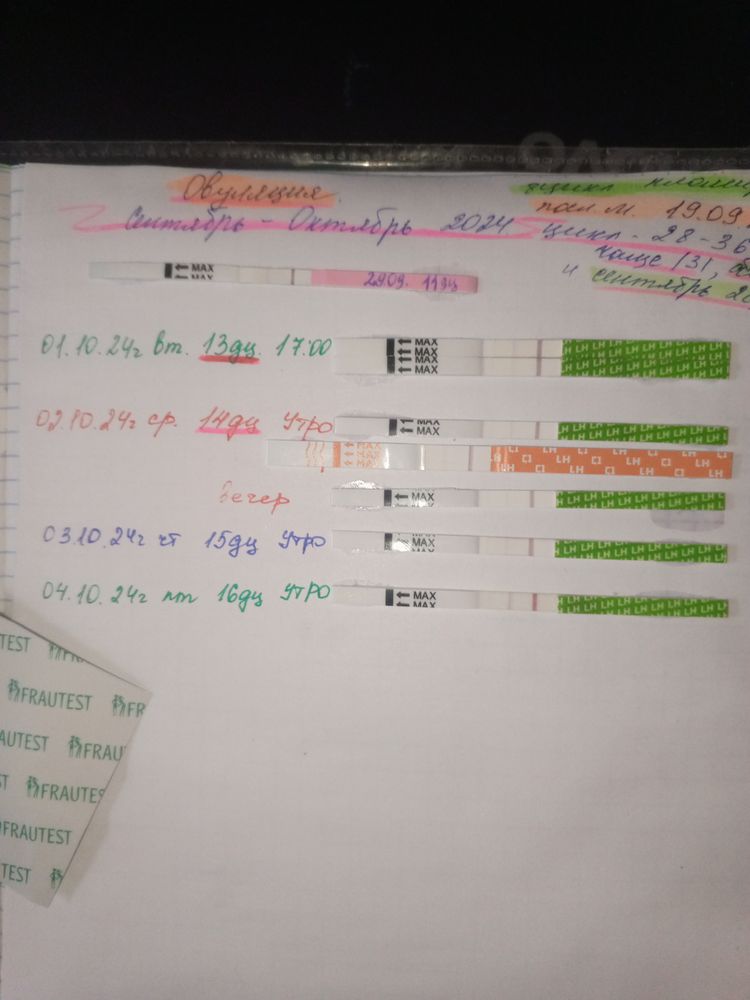 Овуляция
Сентябрь - Октябрь 2024
посл. м. 19.09.
цикл - 28-36
чаще 31,
и сентябрь
MAX
MAX
29.09. 11дц
01.10.24г вт. 13дц. 17:00
MAX
MAX
MAX
LH LH LH LH LH LH LH
02.10.24г ср. 14дц Утро
MAX
MAX
LH LH LH LH LH LH LH
MAX
MAX
MAX
LH LH LH LH LH
вечер
MAX
LH LH LH LH LH LH LH
03.10.24г чт 15дц Утро
MAX
LH LH LH LH LH LH LH
04.10.24г пт 16дц Утро
MAX
MAX
LH LH LH LH LH LH LH
TEST
FRAUTEST
AUTEST
FRAU
FRAUTES
FRAUTEST
TEST